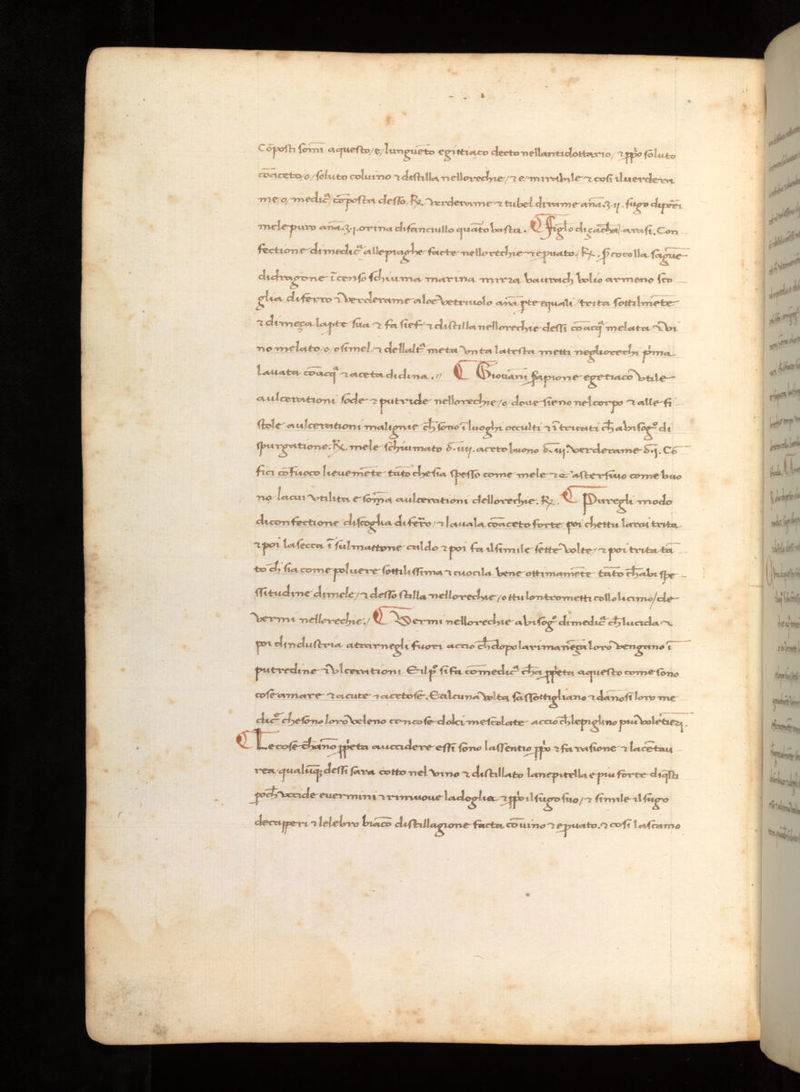 Cōposti somī aquesto/e/lungueto egittiaco decto nellantidottario, ⁊ ꝓpo soluto
cōaceto/o/soluto coluino ⁊ distilla nellorechie/⁊ e mirabile ⁊ cosi iluerdera
me o medicᵃ cōposta desso. ℞. Verderame ⁊ tubel dirame anā.ʒ.ij. sugo diporri
mele puro anā.ʒ.j. orina difanciullo quāto basta. ¶ Figlo di çacharia arasi. Con
fectione dimedicᵃ allepiaghe facte nellorechie ⁊ epuato/ ℞. sarcocolla sāgue
didragone īcenso schiuma marina mirra baurach bolio armeno sco
glia diferro Verderame aloe Vetriuolo anā pte equali trita sottilmēte
⁊ dimeça lapte sua ⁊ fa sief ⁊ distilla nellorechie dessi cōacqᵃ melata Vi
no melato o osimel ⁊ dellaltᵃ meta Vnta latesta metti negliorechi pma
lauata cōacqᵃ ⁊ aceta didina. // ¶ Giouāni sapione egetiaco Vtile
aulcerationi sode ⁊ putride nellorechie/o doue sieno nelcorpo ⁊ alle fi
stole aulcerationi malignie ch̄ sono ī luoghi occulti ⁊ ītricati ch̄ abisogᵒ di
spurgatione. ℞. mele schiumato δ.iiij. aceto buono δ.iij. Verderame δ.j. Cō
fici cōfuoco lieuemēte tāto chesia spesso come mele ⁊ e astersiuo come buo
no lacui Vtilita e soma aulcerationi dellorechie. ℞. ¶ Puregli modo
diconfectione discoglia difero/⁊ lauala cōaceto forte poi chettu larai trita
⁊ poi lasecca ī sulmattone caldo ⁊ poi fa ilsimile sette Volte/⁊ poi trita tā
to ch̄ sia come poluere sottilissima ⁊ cuocila bene ottimamēte tāto ch̄abi spe
ssitudine dimele/⁊ desso stilla nellorechie/o ttu lontrometti collolicinio/de
Vermi nellorechie./ ¶ Vermi nellorechie abisogᵒ dimedicᵃ ch̄lucida ⁊
poi dindustria atrarnegli fuori accio ch̄dopo larimanēça loro Vengano ī
putredine ī Vlcerationi. Eilpᵒ si fa cōmedicᵃ ch̄a ꝓpeta aquesto come sono
cose amare ⁊ acute ⁊ acetose. Ealcuna Volta sassottigliano ⁊ dānosi loro me
dicᵉ chesono loro Veleno con cose dolci mescolate accio ch̄lepiglino piu Volētieri.
¶ Le cose ch̄ano ꝓpeta auccidere essi sono lassentio ꝓpo ⁊ fa rasione ⁊ lacētau
rea/qualūq; dessi sara cotto nel Vino ⁊ distillato lanepitella e piu forte diqsti
poch̄ Vccide euermini ⁊ rimuoue ladoglia ⁊ ꝓpo ilsugo suo/⁊ simile ilsugo
decapperi ⁊ lelebro biāco distillagione facta cōuino ⁊ epuato/⁊ cosi lascamo